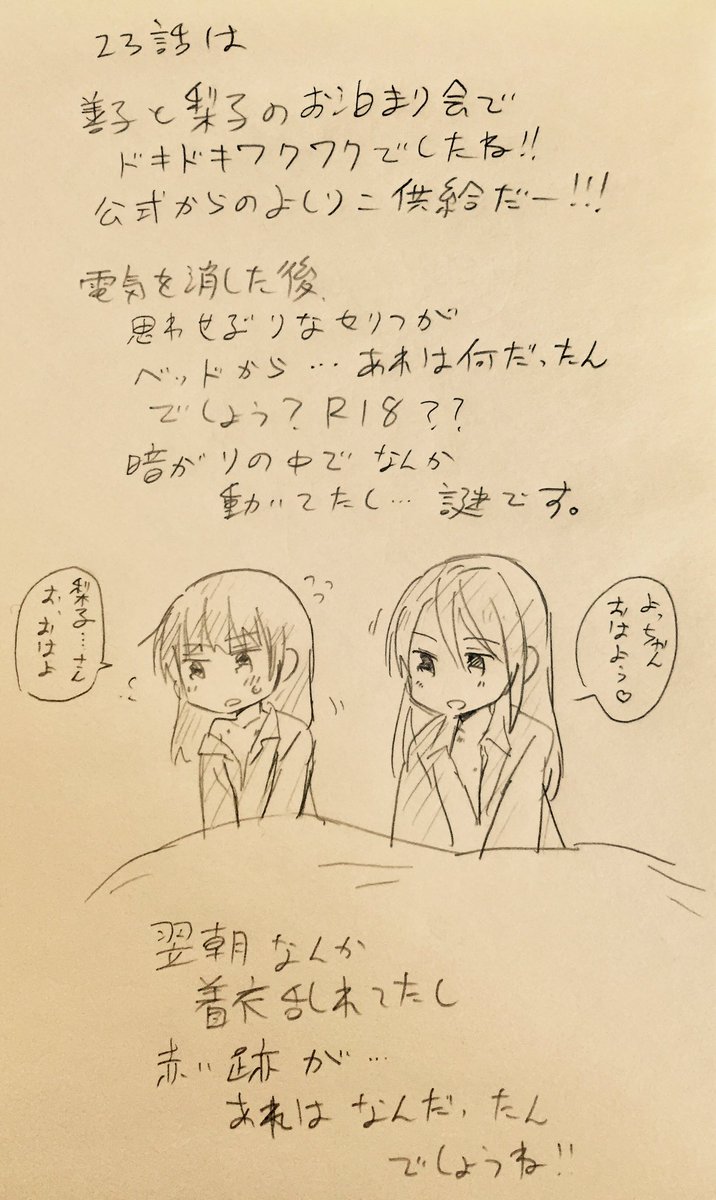 23話は
善子と梨子のお泊まり会で
ドキドキワクワクでしたね!!
公式からのよしりこ供給だー!!!
電気を消した後、
思わせぶりなセリフが
ベッドから…あれは何だったん
でしょう?R18??
暗がりの中でなんか
動いてたし…謎です。
よっちゃん
おはよう♡
梨子…さん
お、おはよ
翌朝なんか
着衣乱れてたし
赤い跡が…
あれはなんだったん
でしょうね!!